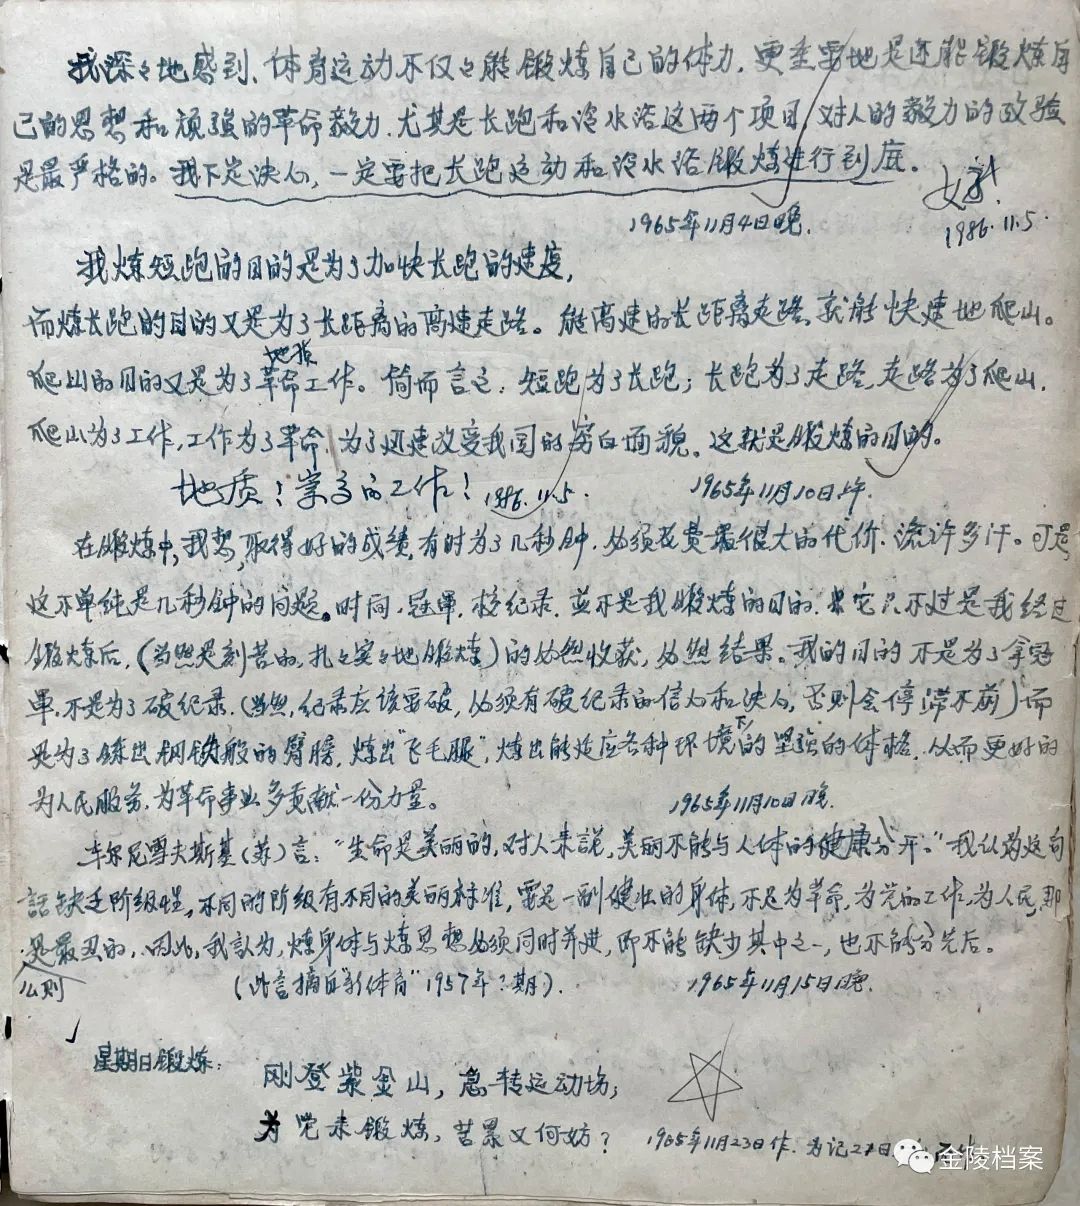 我深々地感到、体育运动不仅々能锻炼自己的体力，更重要地是还能锻炼自
己的思想和顽强的革命毅力，尤其是长跑和冷水浴这两个项目，对人的毅力的考验
是最严格的。我下定决心，一定要把长跑运动和冷水浴锻炼进行到底。
1965年11月4日晚.
1986.11.5.
我炼短跑的目的是为了加快长跑的速度，
而炼长跑的目的又是为了长距离的高速走路。能高速的长距离走路，就能快速地爬山。
地质
爬山的目的又是为了革命工作。简而言之：短跑为了长跑；长跑为了走路，走路为了爬山，
爬山为了工作，工作为了革命，为了迅速改变我国的穷白面貌。这就是锻炼的目的。
地质！崇高的工作！1986.11.5.
1965年11月10日午.
在锻炼中，我想，取得好的成绩，有时为了几秒钟，必须花费最很大的代价，流许多汗。可是，
这不单纯是几秒钟的问题。时间、冠军、校纪录，並不是我锻炼的目的，它只不过是我经过
锻炼后，（当然是刻苦的，扎々实々地锻炼）的必然收获，必然结果。我的目的不是为了拿冠
军，不是为了破纪录，（当然，纪录应该要破，必须有破纪录的信心和决心，否则会停滞不前）而
是为了练出钢铁般的臂膀，炼出“飞毛腿”，炼出能适应各种环境下的坚强的体格，从而更好的
为人民服务，为革命事业多贡献一份力量。
1965年11月10日晚.
车尔尼雪夫斯基（苏）言：“生命是美丽的，对人来説，美丽不能与人体的健康分开。”我认为这句
話缺乏阶级性，不同的阶级有不同的美丽标准，要是一副健壮的身体，不是为革命，为党的工作，为人民，那
么则
是最丑的，因此，我認为，炼身体与炼思想必须同时并进，即不能缺少其中之一，也不能分先后。
（此言摘自“新体育”1957年？期）.
1965年11月15日晚.
星期日锻炼：
刚登紫金山，急转运动场；
为党来锻炼，苦累又何妨？
1965年11月23日作.为记21日
金陵档案